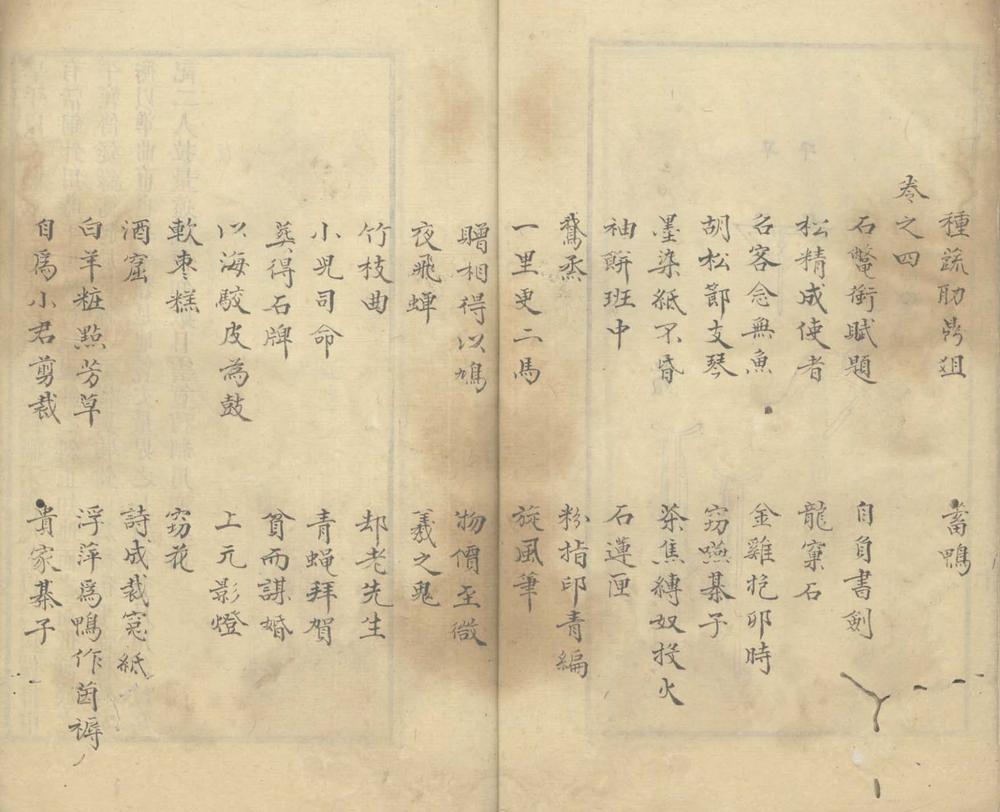 種蔬助鼎俎　蓄鴨
卷之四
石鼈衝賦題　自負書劍
松精成使者　龍窠石
名客念無魚　金雞抱卵時
胡松節支琴　窈嚥棊子
墨染紙不昏　茶焦縛奴投火
袖餅班中　石蓮匣
鵞炙　粉指印青編
一里更二馬　旋風筆
贈相得以鳩　物價至微
夜飛蟬　義之鬼
竹枝曲　却老先生
小兒司命　青蠅拜賀
葬得石牌　貧而謀婚
以海駮皮為鼓　上元影燈
軟棗糕　竊花
酒窟　詩成裁窓紙
白羊粧點芳草　浮萍爲鴨作茵褥
自爲小君剪裁　貴家棊子